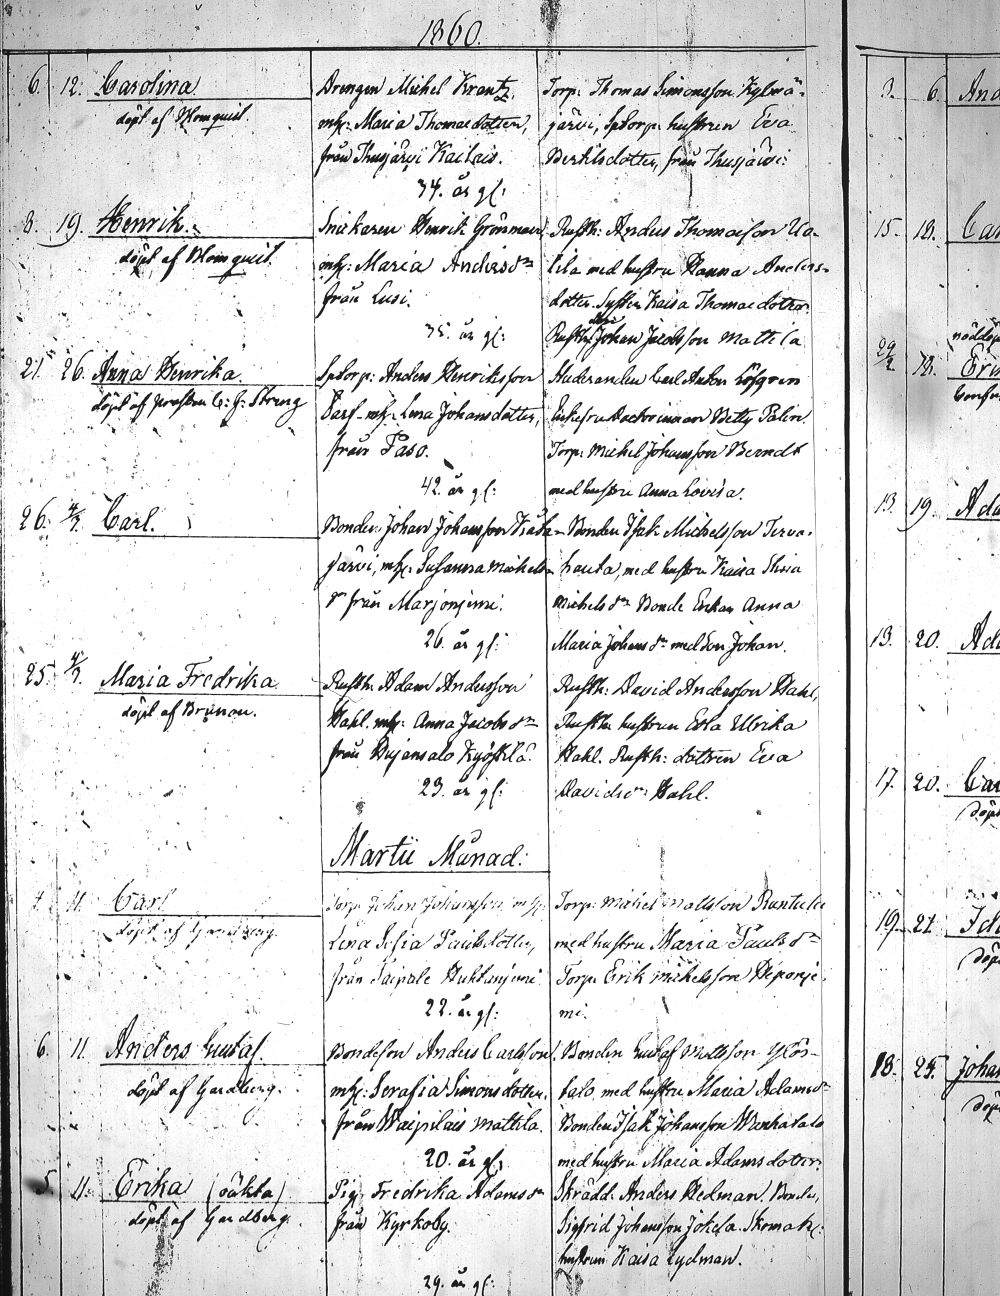 1860.
6. 12. Carolina
döpt af Blomquist.
Drengen Michel Krantz,
mh: Maria Thomædotter,
från Thusjärvi Kailais.
34. år gl:
Torp: Thomas Simonsson Kylmä-
järvi, Sptorp: hustrun Eva
Bertilsdotter, från Thusjärvi:
8. 19. Henrik.
döpt af Blomquist.
Snickaren Henrik Grönman
mh: Maria Andersdr
från Lusi.
35. år gl:
Rusth: Anders Thomasson Ua-
tila med hustru Hanna Anders-
dotter. Systern Kaisa Thomædotter.
Rusth: Johan Jacobsson Mattila
21. 26. Anna Henrika.
döpt af prosten C: J: Streng
Sptorp: Anders Henriksson
mh: Lena Johansdotter,
från Paso.
42. år gl:
Studeranden Carl Anton Löfgren
Enkefru Doctorinnan Betty Palen.
Torp: Michel Johansson Berndt
med hustru Anna Lovisa.
26. 4/3. Carl.
Bonden Johan Johansson
järvi, mh: Susanna Michels-
dr från Marjoniemi.
26. år gl:
Bonden Isak Michelsson Terva-
hauta, med hustru Kaisa Stina
Michelsdr Bonde Enkan Anna
Maria Johansdr med Son Johan.
25. 4/3. Maria Fredrika
döpt af Brunou.
Rusth: Adam Andersson
Hahl. mh: Anna Jacobsdr
från Pujansalo Kyöstilä.
23. år gl:
Rusth: David Andersson Hahl,
Rusth: hustrun Eva Ulrika
Hahl. Rusth: dottren Eva
Davidsdr Hahl.
Martii Månad.
11. Carl
döpt af Gardberg.
Torp: Johan Johansson mh:
Lena Sofia Paulsdotter,
från Paipale Huhtaniemi
22. år gl:
Torp: Michel Mattsson Rantula
med hustru Maria Paulsdr
Torp: Erik Michelsson Heponie-
mi.
6. 11. Anders Gustaf.
döpt af Gardberg.
Bondeson Anders Carlsson
mh: Serafia Simonsdotter,
från Waipilais Mattila.
20. år gl:
Bonden Gustaf Mattsson Ylös-
talo, med hustru Maria Adamsdr
Bonden Isak Johansson Wanhatalo
med hustru Maria Adamsdotter.
5. 11. Erika (oäkta)
döpt af Gardberg.
Pig: Fredrika Adamsdr
från Kyrkoby.
29. år gl:
Skrädd: Anders Hedman. Bonden,
Sigfrid Johansson Jokela. Skomak:
hustrun Kaisa Lydman.
3. 6. And
15. 18. Car
29/2 18. Eri
13. 19. Ada
13. 20. Ada
17. 20. Car
döpt
19. 21. Ida
döpt
18. 25. Johan
döpt